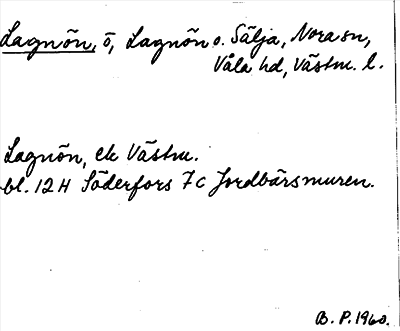 Lagnön, ö, Lagnön o. Sälja, Nora sn,
Våla hd, Västm. l.
Lagnön, ek Västm.
bl. 12 H Söderfors 7 c Jordbärsmuren.
B. P. 1960.